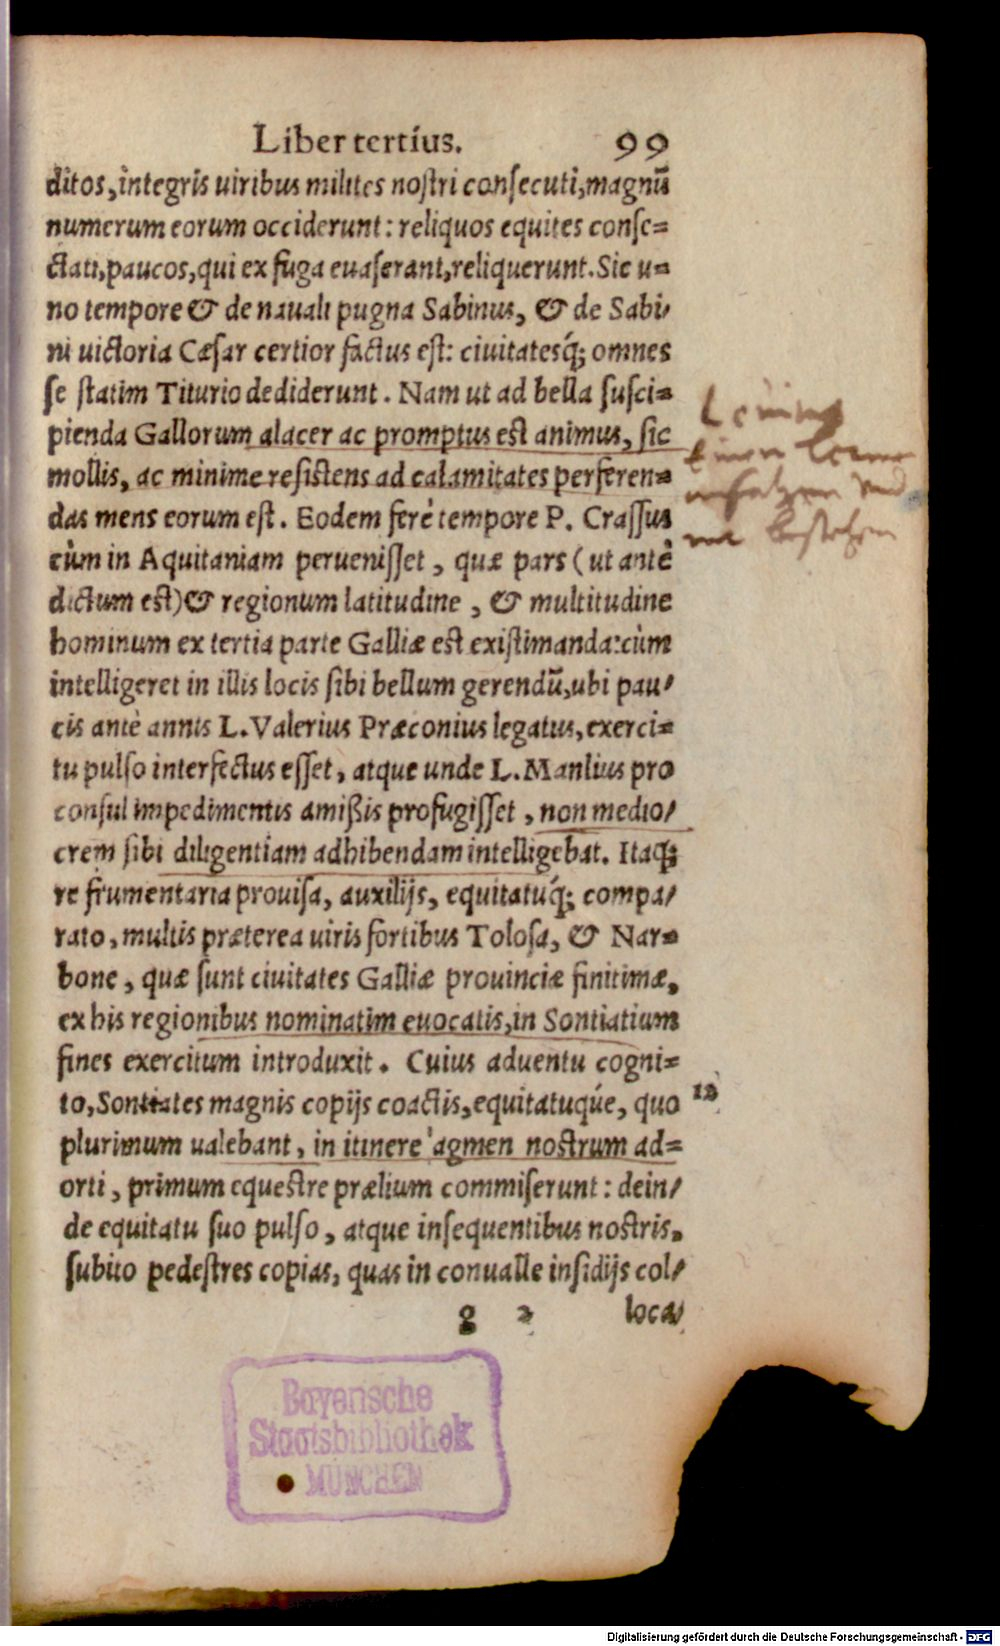 Liber tertius. 99
ditos, integris uiribus milites nostri consecuti, magnū
numerum eorum occiderunt: reliquos equites conse=
ctati, paucos, qui ex fuga euaserant, reliquerunt. Sic u=
no tempore & de nauali pugna Sabinus, & de Sabi/
ni uictoria Cæsar certior factus est: ciuitatesq́; omnes
se statim Titurio dediderunt. Nam ut ad bella susci=
pienda Gallorum alacer ac promptus est animus, sic
mollis, ac minime resistens ad calamitates perferen=
das mens eorum est. Eodem ferè tempore P. Crassus
cùm in Aquitaniam peruenisset, quæ pars (ut antè
dictum est) & regionum latitudine, & multitudine
hominum ex tertia parte Galliæ est existimanda: cùm
intelligeret in illis locis sibi bellum gerendū, ubi pau/
cis antè annis L. Valerius Præconius legatus, exerci=
tu pulso interfectus esset, atque unde L. Manlius pro
consul impedimentis amißis profugisset, non medio/
crem sibi diligentiam adhibendam intelligebat. Itaq;
re frumentaria prouisa, auxilijs, equitatuq́; compa/
rato, multis præterea uiris fortibus Tolosa, & Nar=
bone, quæ sunt ciuitates Galliæ prouinciæ finitimæ,
ex his regionibus nominatim euocatis, in Sontiatium
fines exercitum introduxit. Cuius aduentu cogni=
to, Sontiates magnis copijs coactis, equitatuqúe, quo
12
plurimum ualebant, in itinere agmen nostrum ad=
orti, primum equestre prælium commiserunt: dein/
de equitatu suo pulso, atque insequentibus nostris,
subito pedestres copias, quas in conualle insidijs col/
g 2 loca/
Bayerische
Staatsbibliothek
MÜNCHEN
Digitalisierung gefördert durch die Deutsche Forschungsgemeinschaft - DFG